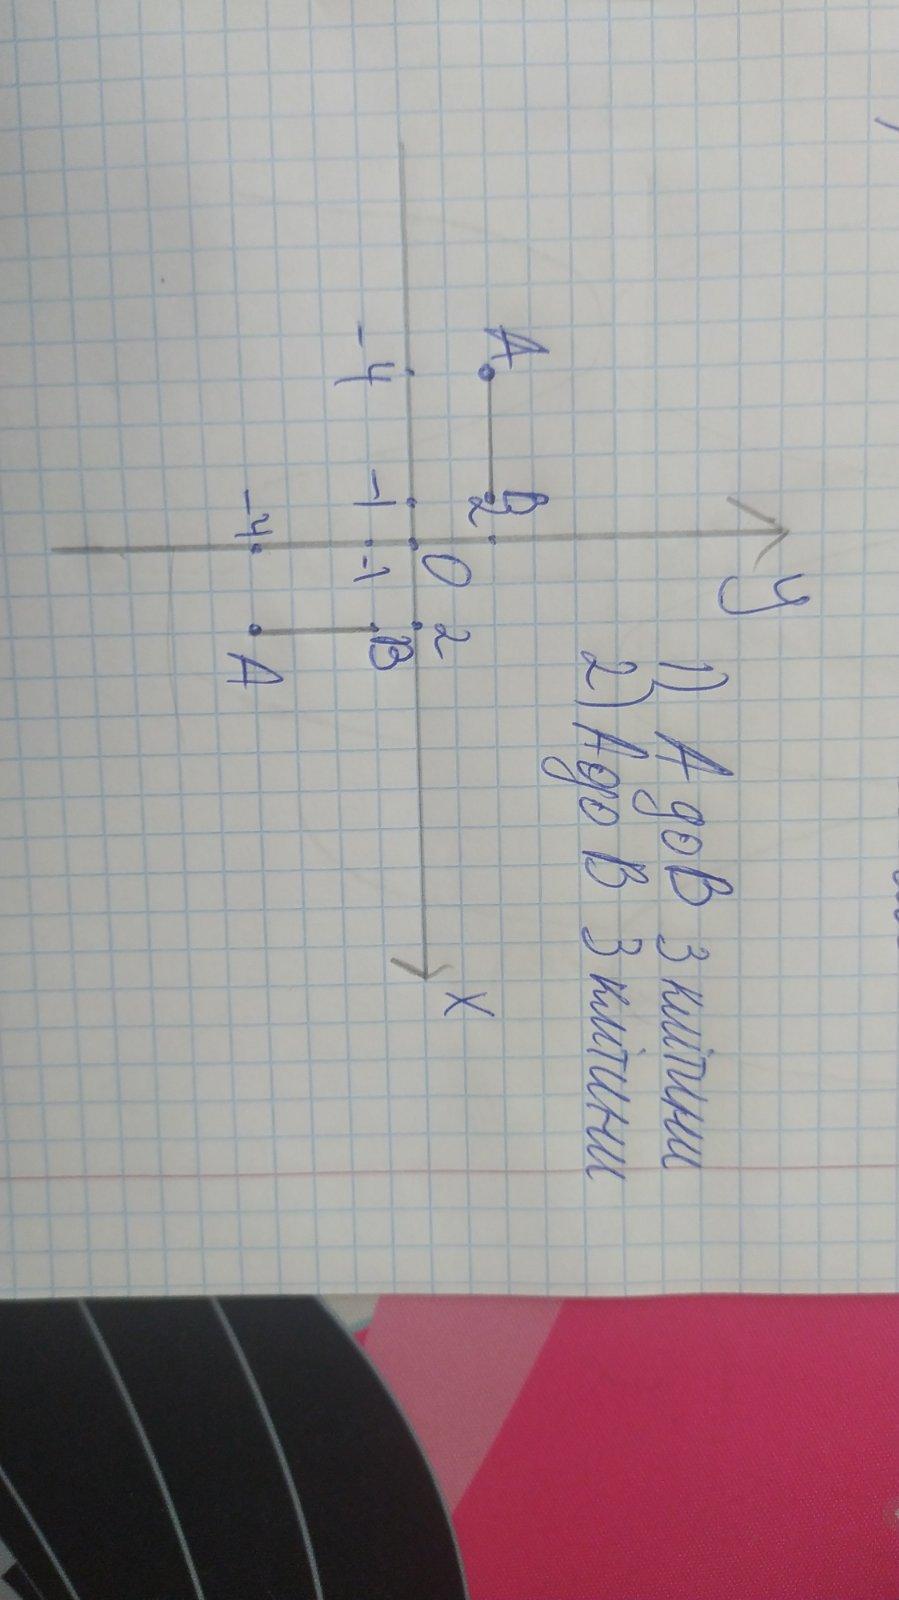 y
1) А до В 3 клітини
2) А до В 3 клітини
А
В
2
-4
-1
0
2
x
-1
В
-4
А